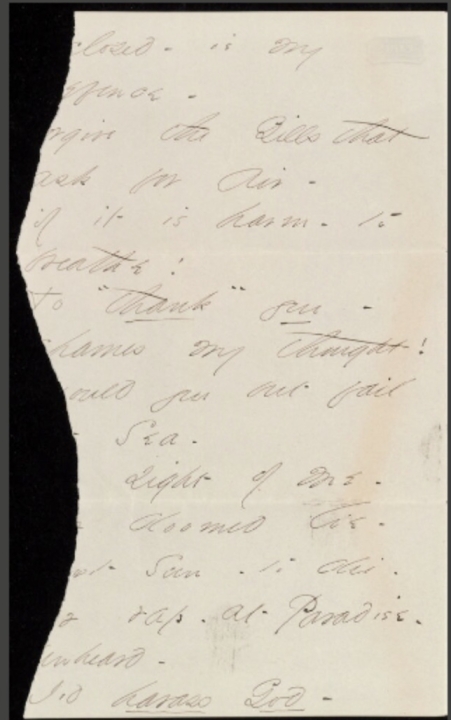 closed - is my
efence -
rgive the Gills that
ask for Air -
if it is harm - to
breathe!
To "thank" you -
shames my thought!
ould you but fail
Sea -
sight of me -
doomed lie -
Sun - to die -
rap - at Paradise -
unheard -
I'd harass God -